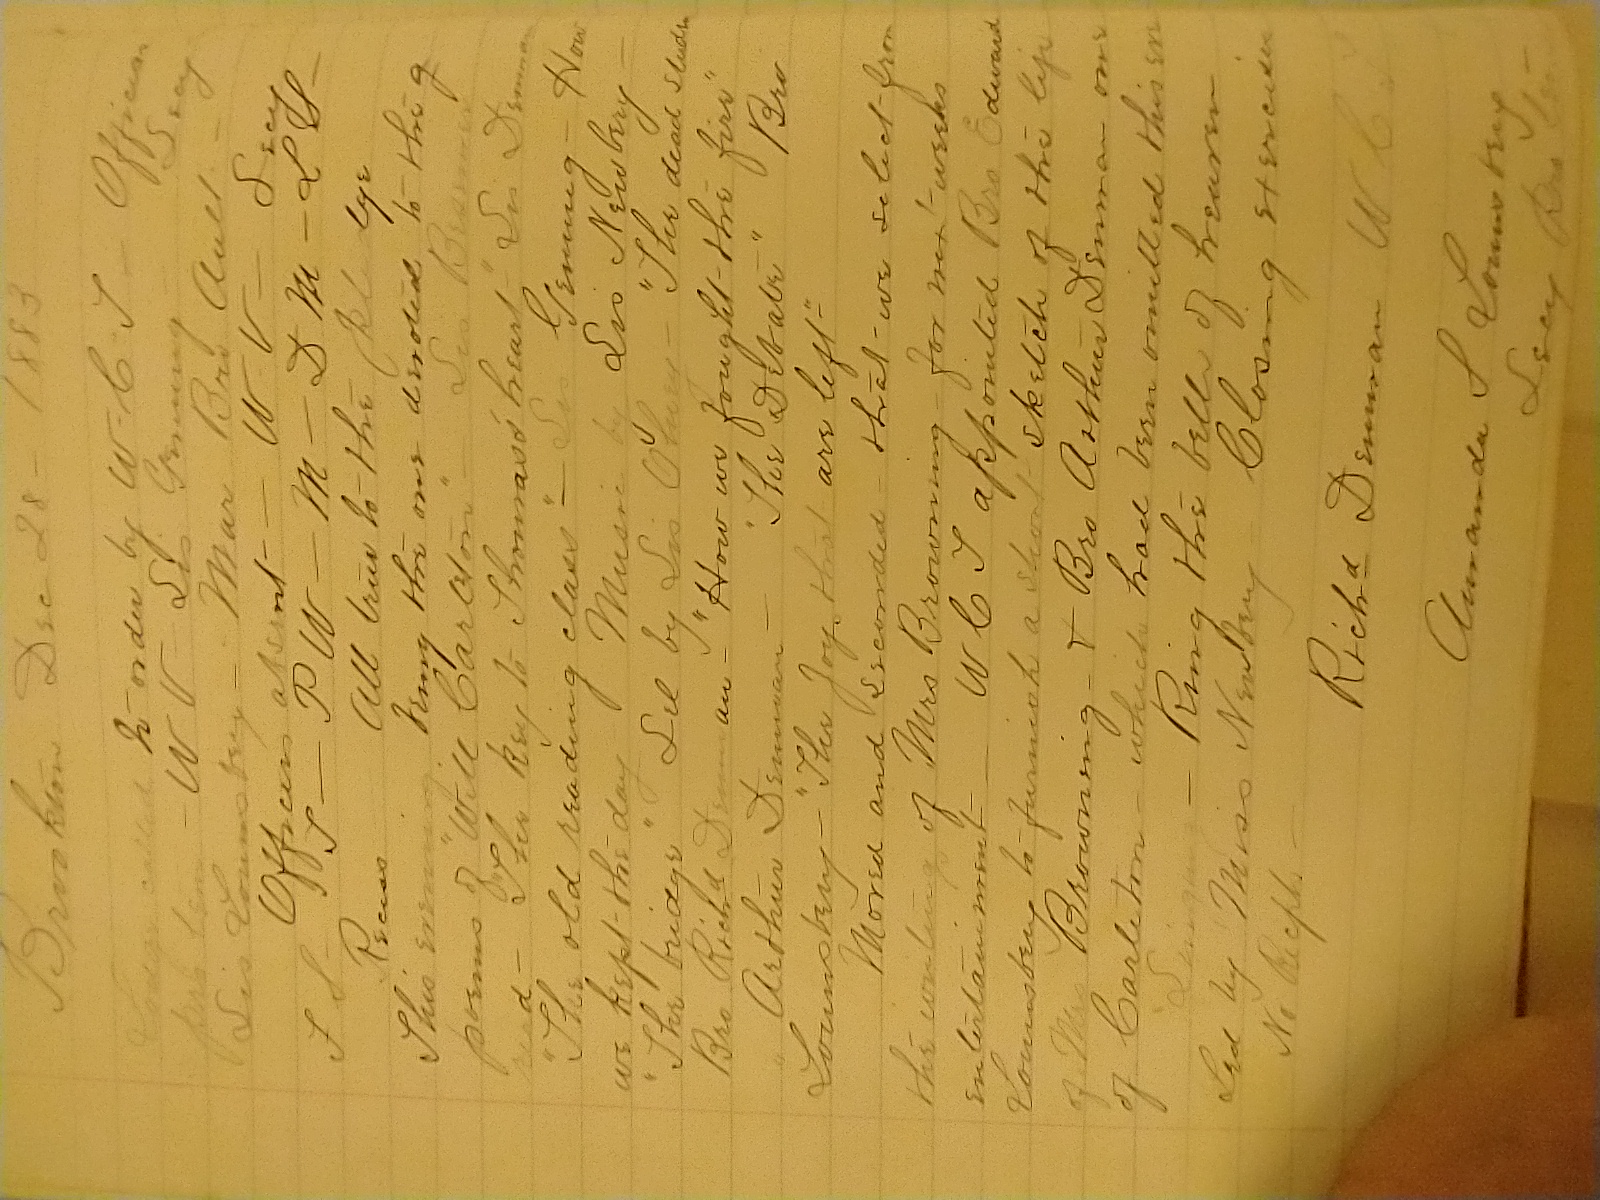 Brookton Dec 28 - 1883
Lodge called to order by W-C-T - Officers
pro tem - W V - Sis Genung - Secy
Sis Lounsbery - Mar Bro Ault -
Officers absent - W V - Secy
F S - T - P W - M - D M - L S -
Recess All true to the pledge
This evening being the one devoted to the
poems of "Will Carleton" - Sis Besemer
read - "The key to Thomas's heart" Sis Denman
"The old reading class" - Sis Genung - How
we kept the day Music by Sis Newbery -
"The bridge" Sel by Sis Olney - "The dead studen
Bro Richd Denman - "How we fought the fire"
" Arthur Denman - "The Debate" Bro
Lounsbery - "The Joys that are left"
Moved and seconded - that we select from
the writings of Mrs Browning - for next weeks
entertainment - W C T appointed Bro Edward
Lounsbery to furnish a short sketch of the life
of Mrs Browning - & Bro Arthur Denman one
of Carleton - which had been omitted this eve
Singing - Ring the bells of heaven
Led by Miss Newbery Closing exercises
No Recpts -
Richd Denman W C T
Amanda S Lounsbery
Secy Pro tem